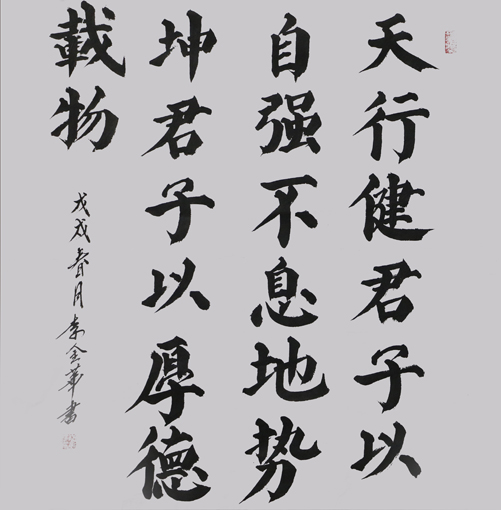 天行健君子以
自强不息地势
坤君子以厚德
載物
戊戌春月李金華書